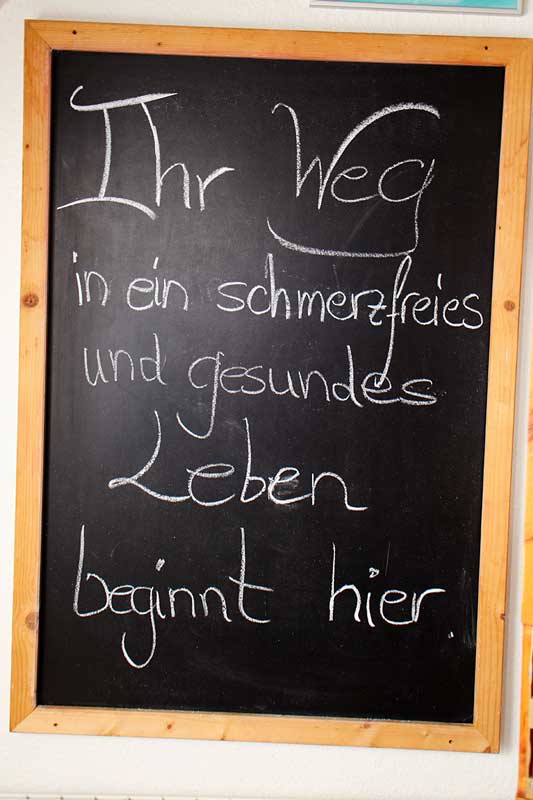 Ihr Weg
in ein schmerzfreies
und gesundes
Leben
beginnt hier.